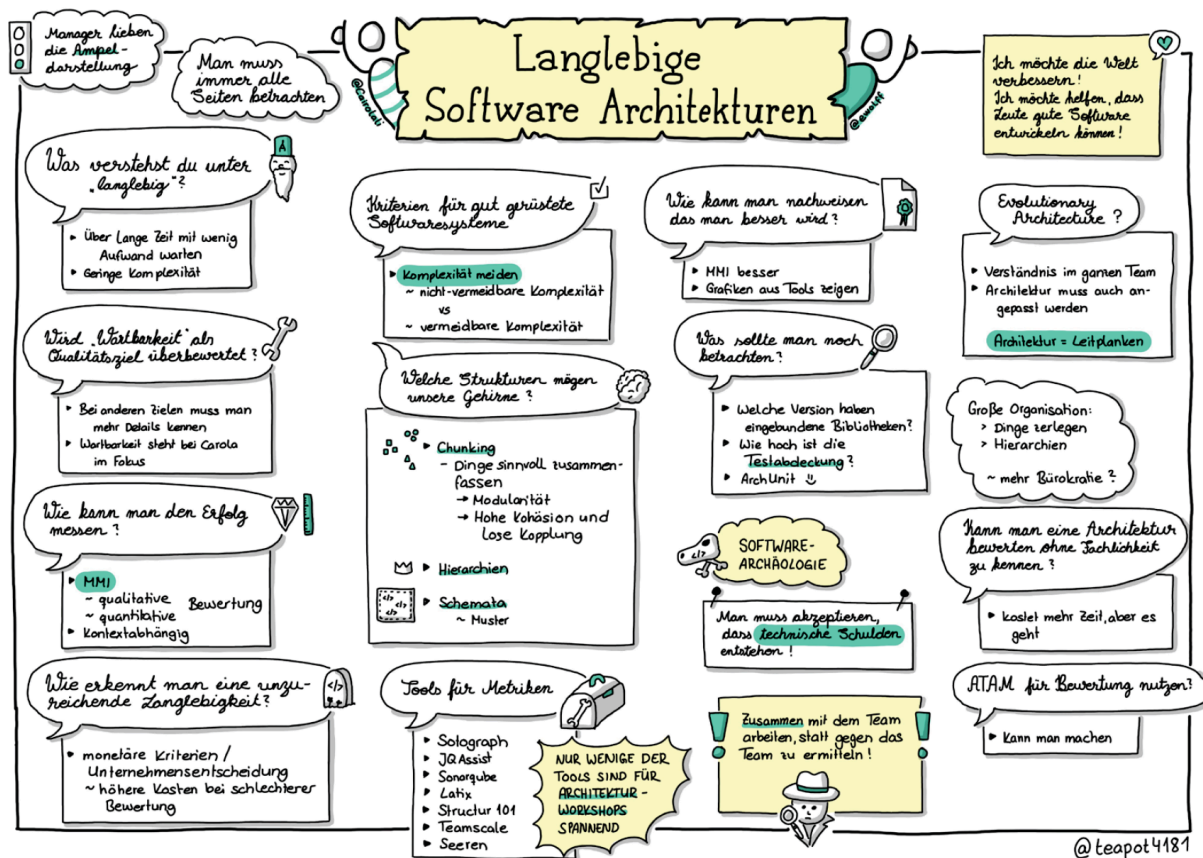 Manager lieben
die Ampel-
darstellung
Man muss
immer alle
Seiten betrachten
@Cairolali
Langlebige
Software Architekturen
@ewolff
Ich möchte die Welt
verbessern!
Ich möchte helfen, dass
Leute gute Software
entwickeln können!
Was verstehst du unter
„langlebig"?
A
▸ Über Lange Zeit mit wenig
Aufwand warten
▸ Geringe Komplexität
Wird „Wartbarkeit" als
Qualitätsziel überbewertet?
▸ Bei anderen Zielen muss man
mehr Details kennen
▸ Wartbarkeit steht bei Carola
im Fokus
Wie kann man den Erfolg
messen?
▸ MMI
~ qualitative
~ quantitative
Bewertung
▸ Kontextabhängig
Wie erkennt man eine unzu-
reichende Langlebigkeit?
</>
▸ monetäre Kriterien /
Unternehmensentscheidung
~ höhere Kosten bei schlechterer
Bewertung
Kriterien für gut gerüstete
Softwaresysteme
▸ Komplexität meiden
~ nicht-vermeidbare Komplexität
vs
~ vermeidbare Komplexität
Welche Strukturen mögen
unsere Gehirne?
▸ Chunking
- Dinge sinnvoll zusammen-
fassen
→ Modularität
→ Hohe Kohäsion und
Lose Kopplung
▸ Hierarchien
▸ Schemata
~ Muster
</>
</>
</>
Tools für Metriken
▸ Sotograph
▸ JQAssist
▸ Sonarqube
▸ Latix
▸ Structur 101
▸ Teamscale
▸ Seeren
NUR WENIGE DER
TOOLS SIND FÜR
ARCHITEKTUR-
WORKSHOPS
SPANNEND
Wie kann man nachweisen
das man besser wird?
▸ MMI besser
▸ Grafiken aus Tools zeigen
Was sollte man noch
betrachten?
▸ Welche Version haben
eingebundene Bibliotheken?
▸ Wie hoch ist die
Testabdeckung?
▸ ArchUnit
</>
SOFTWARE-
ARCHÄOLOGIE
Man muss akzeptieren,
dass technische Schulden
entstehen!
Zusammen mit dem Team
arbeiten, statt gegen das
Team zu ermitteln!
Evolutionary
Architecture?
▸ Verständnis im ganzen Team
▸ Architektur muss auch an-
gepasst werden
Architektur = Leitplanken
Große Organisation:
> Dinge zerlegen
> Hierarchien
~ mehr Bürokratie?
Kann man eine Architektur
bewerten ohne Fachlichkeit
zu kennen?
▸ Kostet mehr Zeit, aber es
geht
ATAM für Bewertung nutzen?
▸ Kann man machen
@teapot4181